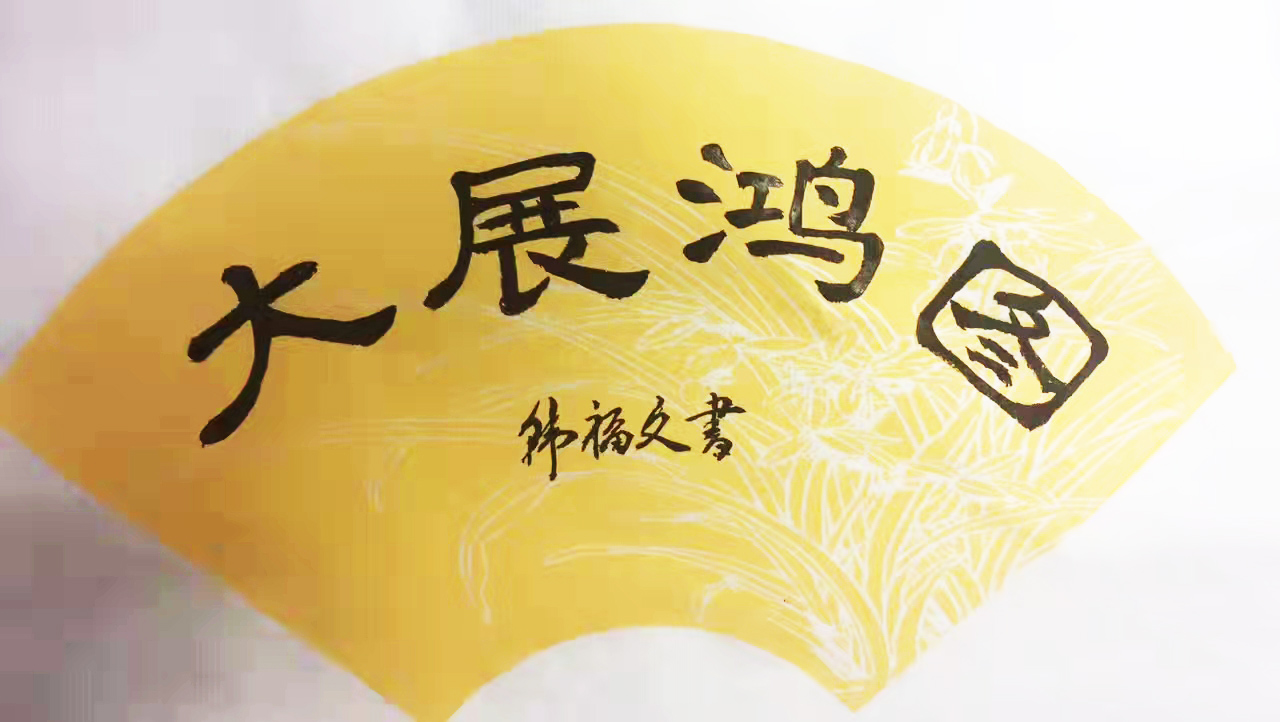 大展鸿图
韩福文書